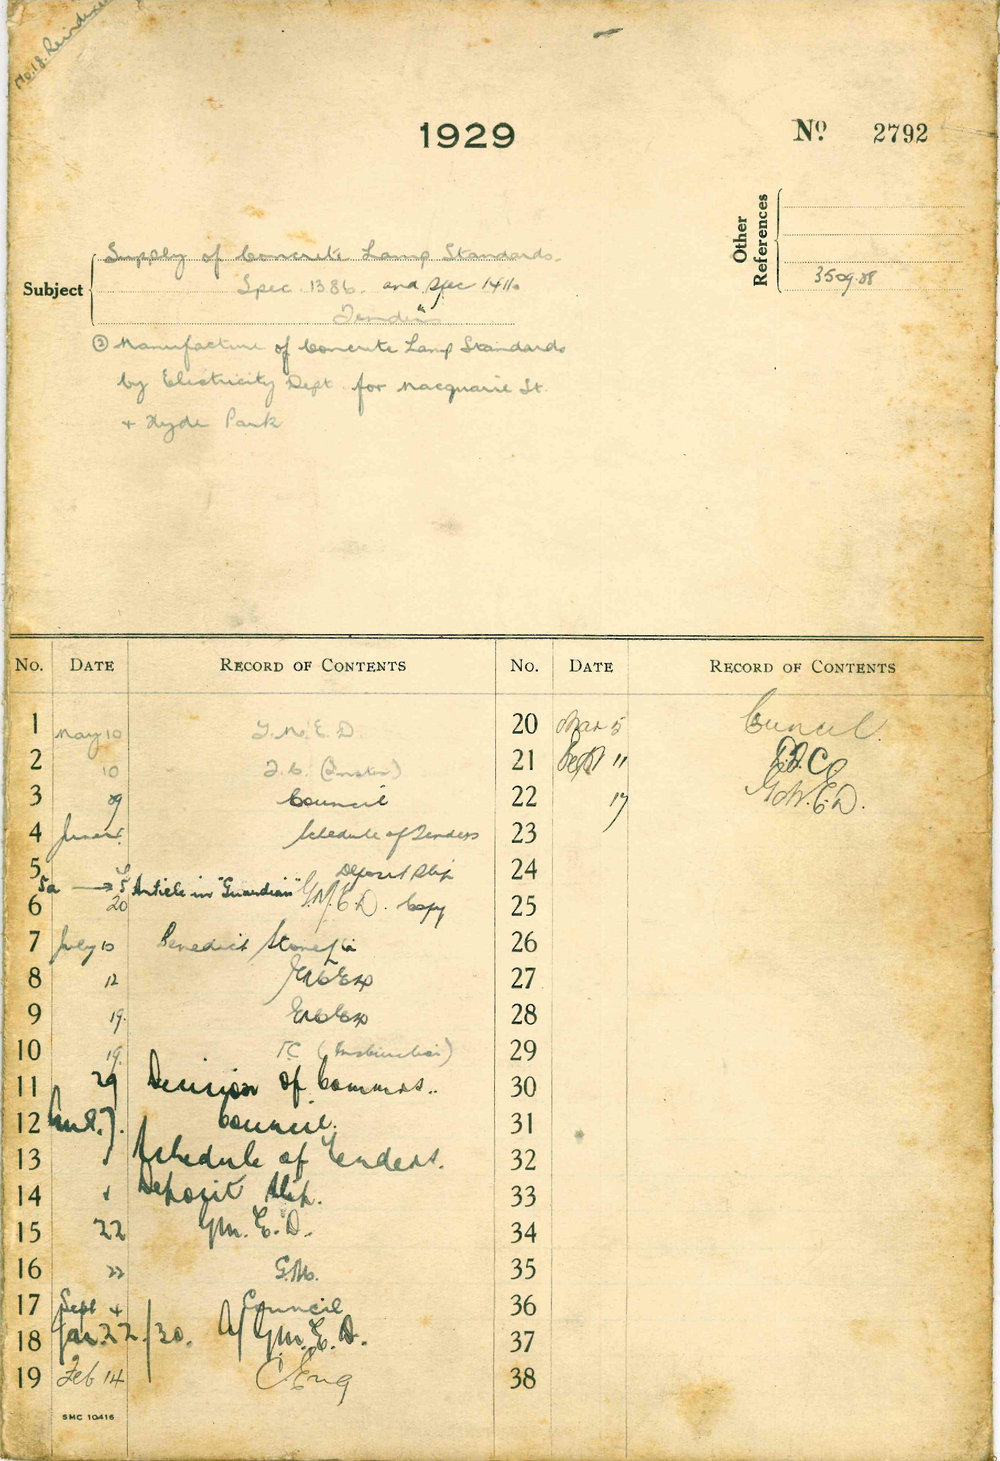 No. 18. Reindexed
1929
No 2792
Other References
3509.28
Subject
Supply of Concrete Lamp Standards.
Spec. 1386. and Spec 1416
Tenders
② Manufacture of Concrete Lamp Standards
by Electricity Dept for Macquarie St.
+ Hyde Park
No. DATE RECORD OF CONTENTS
1 May 10 G.M.E.D.
2 10 T.C.
3 29 Council
4 June Schedule of Tenders
5 Deposit Slip
5a → 5 Article in "Guardian"
6 20 G.M.E.D. Copy
7 July 10 Benedict Stone
8 12
9 19.
10 19. T.C. (Instruction)
11 29 Decision of Comms..
12 Aug. 7. Council.
13 Schedule of Tenders.
14 Deposit Slip.
15 22 G.M.E.D.
16 22 G.M.
17 Sept 4 Council
18 Jan. 22/30. A/G.M.E.D.
19 Feb 14 C Eng
SMC 10416
No. DATE RECORD OF CONTENTS
20 Mar 5 Council.
21 Sept 11
22 17 G.M.E.D.
23
24
25
26
27
28
29
30
31
32
33
34
35
36
37
38